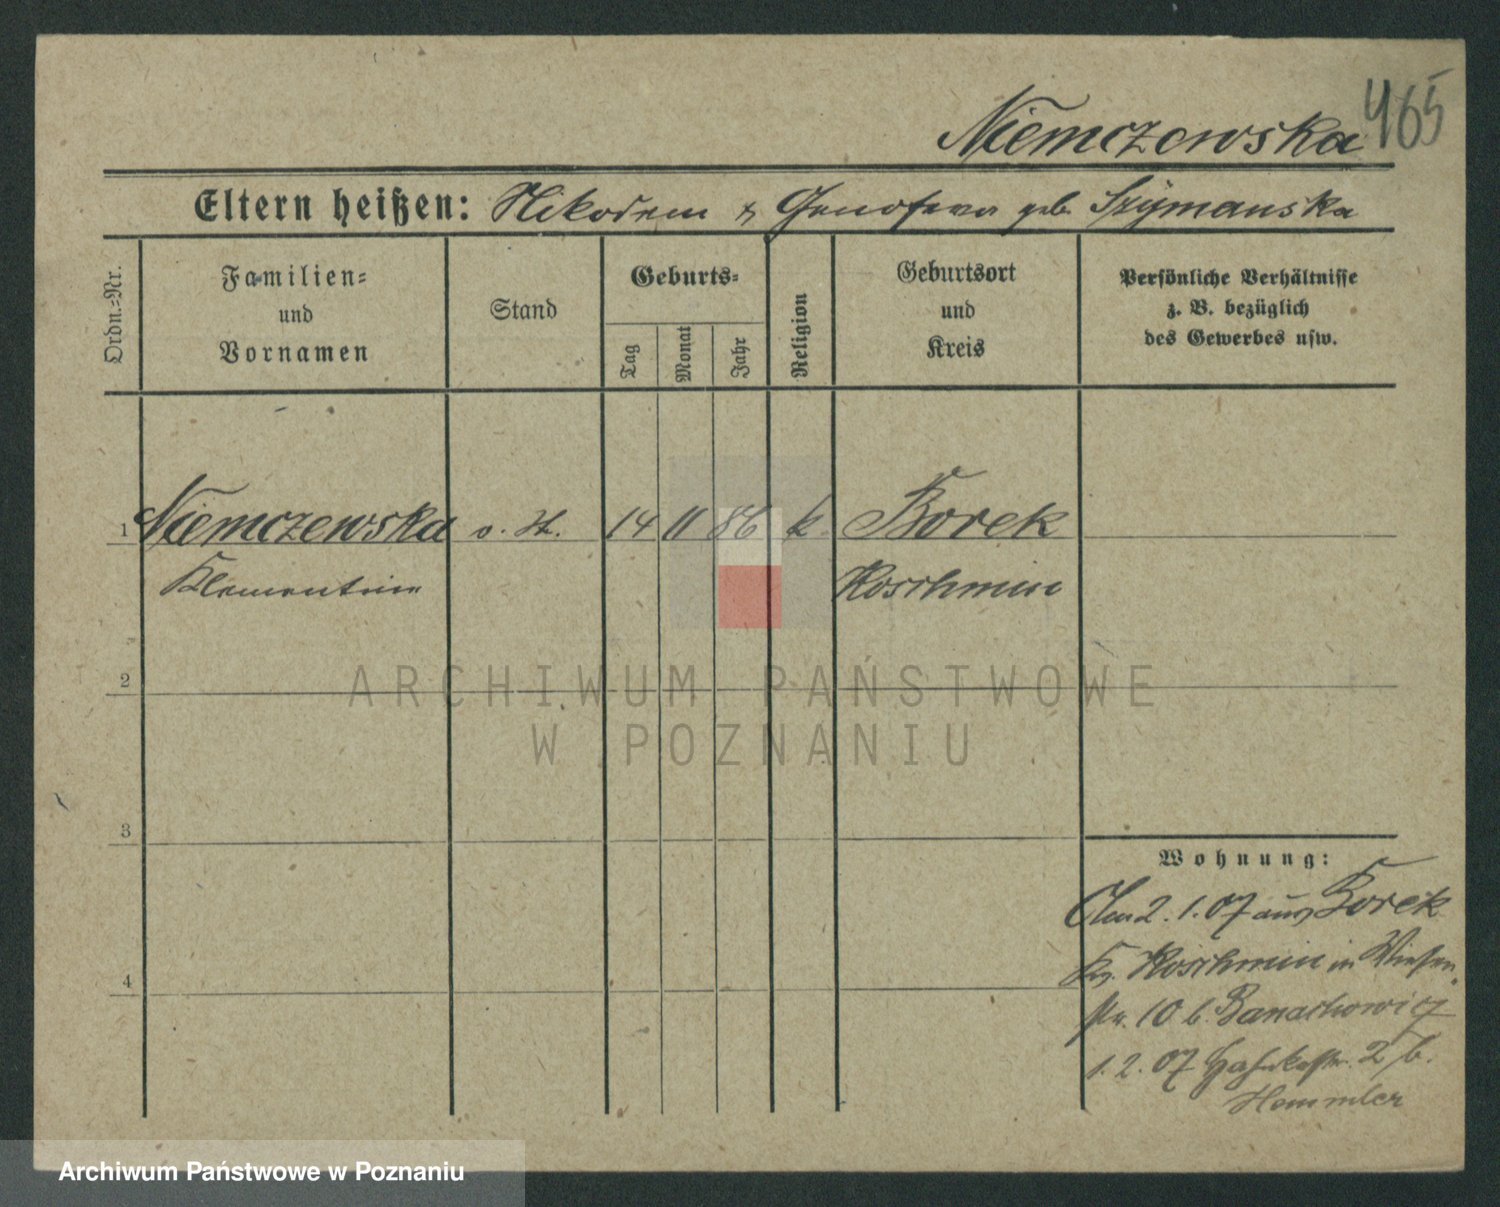 465
Niemczewska
Eltern heißen: Nikodem & Genofeva geb. Szymanska
Ordn.-Nr.
Familien-
und
Vornamen
Stand
Geburts-
Tag
Monat
Jahr
Religion
Geburtsort
und
Kreis
Persönliche Verhältnisse
z. B. bezüglich
des Gewerbes usw.
1 Niemczewska o. St. 14 11 86 k. Borek
Klementine Koschmin
2
ARCHIWUM PAŃSTWOWE
W POZNANIU
3
4
Wohnung:
2.1.07 aus Borek
Koschmin in Wiesen
str. 10 b. Banachowicz
1.2.07 2 b.
Hemmler
Archiwum Państwowe w Poznaniu